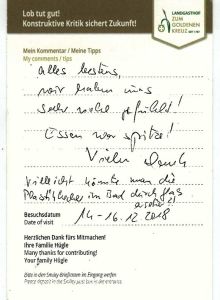 Lob tut gut!
Konstruktive Kritik sichert Zukunft!
LANDGASTHOF
ZUM
GOLDENEN
KREUZ
Mein Kommentar / Meine Tipps
My comments / tips
alles bestens,
wir haben uns
sehr wohl gefühlt!
Essen war spitze!
Vielen Dank
Vielleicht könnte man die
Plastikbecher im Bad durch Glas
ersetzen!
Besuchsdatum
Date of visit
14-16.12.2018
Herzlichen Dank fürs Mitmachen!
Ihre Familie Hügle
Many thanks for contributing!
Your family Hügle
Bitte in den Smiley-Briefkasten im Eingang werfen
Please deposit in the Smiley post box in the entrance